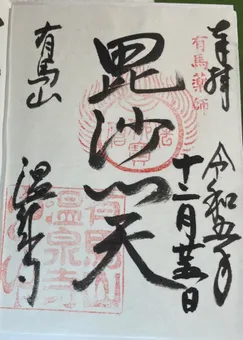 奉拝
有馬薬師
令和五年
十二月 日
毘沙門天
有馬山
温泉寺
有馬山
温泉寺